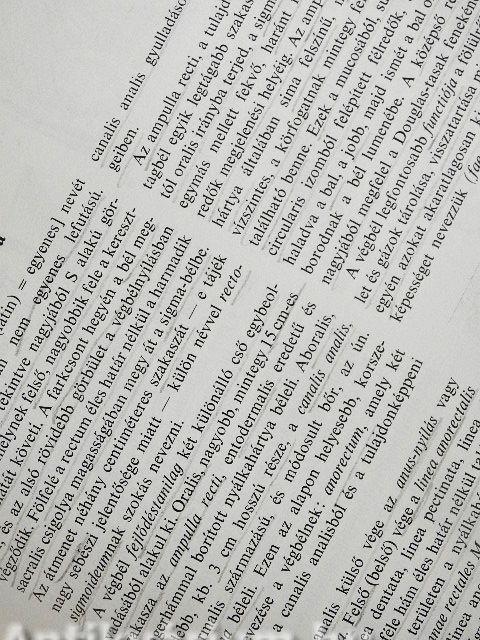 (latin) = egyenes] nevét
tekintve nem egyenes lefutású,
melynek felső, nagyobbik fele a kereszt-
tát követi. A farkcsont hegyén a bél meg-
és az alsó rövidebb görbület a végbélnyílásban
végződik. Fölfelé a rectum éles határ nélkül a harmadik
sacralis csigolya magasságában megy át a sigma-bélbe.
Az átmenet néhány centiméteres szakaszát — e tájék
nagy sebészi jelentősége miatt — külön névvel recto-
sigmoideumnak szokás nevezni.
A végbél fejlődéstanilag két különálló cső egybeol-
vadásából alakul ki. Oralis, nagyobb, mintegy 15 cm-es
szakasza az ampulla recti, entodermalis eredetű és
hámmal borított nyálkahártya béleli. Aboralis,
kb. 3 cm hosszú része, a canalis analis,
származású, és módosult bőr, az ún.
béleli. Ezen az alapon helyesebb, korsze-
a végbélnek: anorectum, amely két
a canalis analisból és a tulajdonképpeni
canalis analis gyulladáso
geiben.
Az ampulla recti, a tulajd
tagbél egyik legtágabb szakas
tól oralis irányba terjed, a sigm
egymás mellett fekvő, haránt
redők megjelenési helyéig. Az amp
hártya általában sima felszínű,
vízszintes, a körfogatnak mintegy fe
található benne. Ezek a mucosából, su
circularis izomból felépített félredők.
haladva a bal, a jobb, majd ismét a bal o
borodnak a bél lumenébe. A középső
nagyjából megfelel a Douglas-tasak fenekén
A végbél legfontosabb functiója a fölül
let és gázok tárolása, visszatartása m
egyén azokat akaratlagosan k
képességet nevezzük
analis külső vége az anus-nyílás vagy
Felső (belső) vége a linea anorectalis
dentata, linea pectinata, linea
féle hám éles határ nélkül
területen a nyálk
rectales M